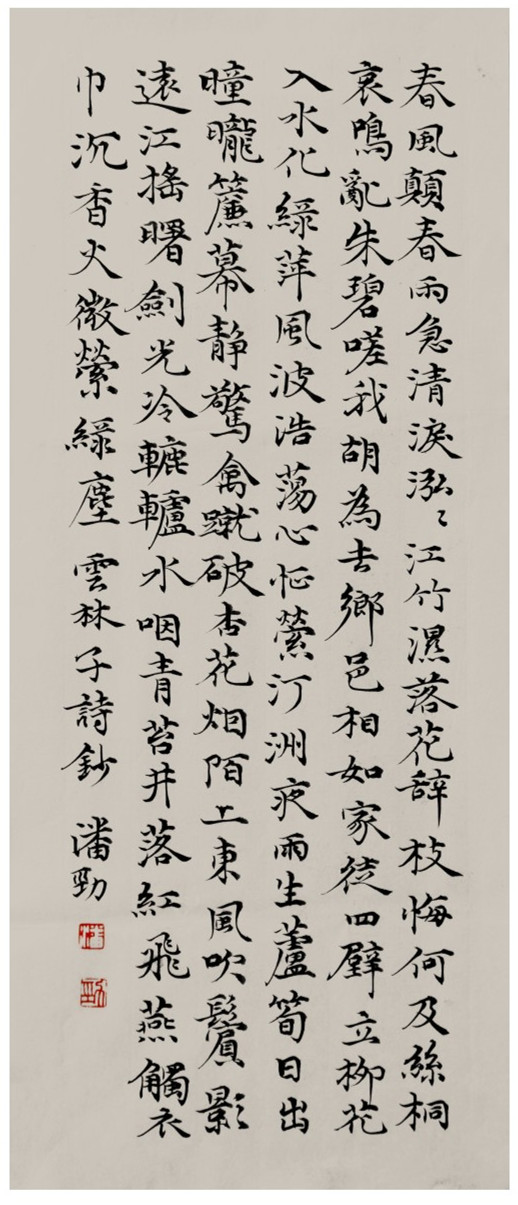 春風顛春雨急清淚泓〻江竹濕落花辭枝悔何及絲桐
哀鳴亂朱碧嗟我胡為去鄉邑相如家徒四壁立柳花
入水化綠萍風波浩蕩心怔縈汀洲夜雨生蘆筍日出
曈曨簾幕靜驚禽蹴破杏花烟陌上東風吹鬢影
遠江搖曙劍光冷轆轤水咽青苔井落紅飛燕觸衣
巾沉香火微縈綠塵 雲林子詩鈔 潘勁